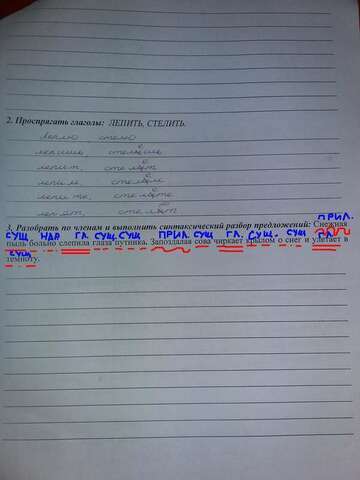 2. Проспрягать глаголы: ЛЕПИТЬ, СТЕЛИТЬ.
леплю, стелю
лепишь, стелешь
лепит, стелет
лепим, стелем
лепите, стелете
лепят, стелют
3. Разобрать по членам и выполнить синтаксический разбор предложений: Снежная
ПРИЛ.
СУЩ. НАР ГЛ. СУЩ. СУЩ ПРИЛ. СУЩ ГЛ. СУЩ. СУЩ ГЛ.
пыль больно слепила глаза путника. Запоздалая сова чиркает крылом о снег и улетает в
СУЩ
темноту.